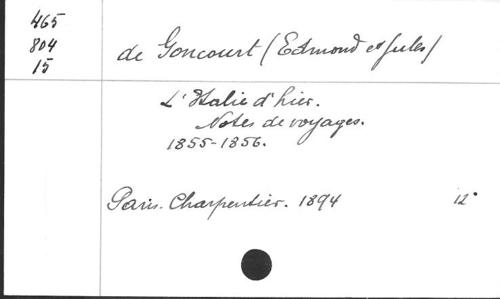 465
804
15
de Goncourt (Edmond et Jules)
L'Italie d'hier.
Notes de voyages.
1855-1856.
Paris. Charpentier. 1894 12°